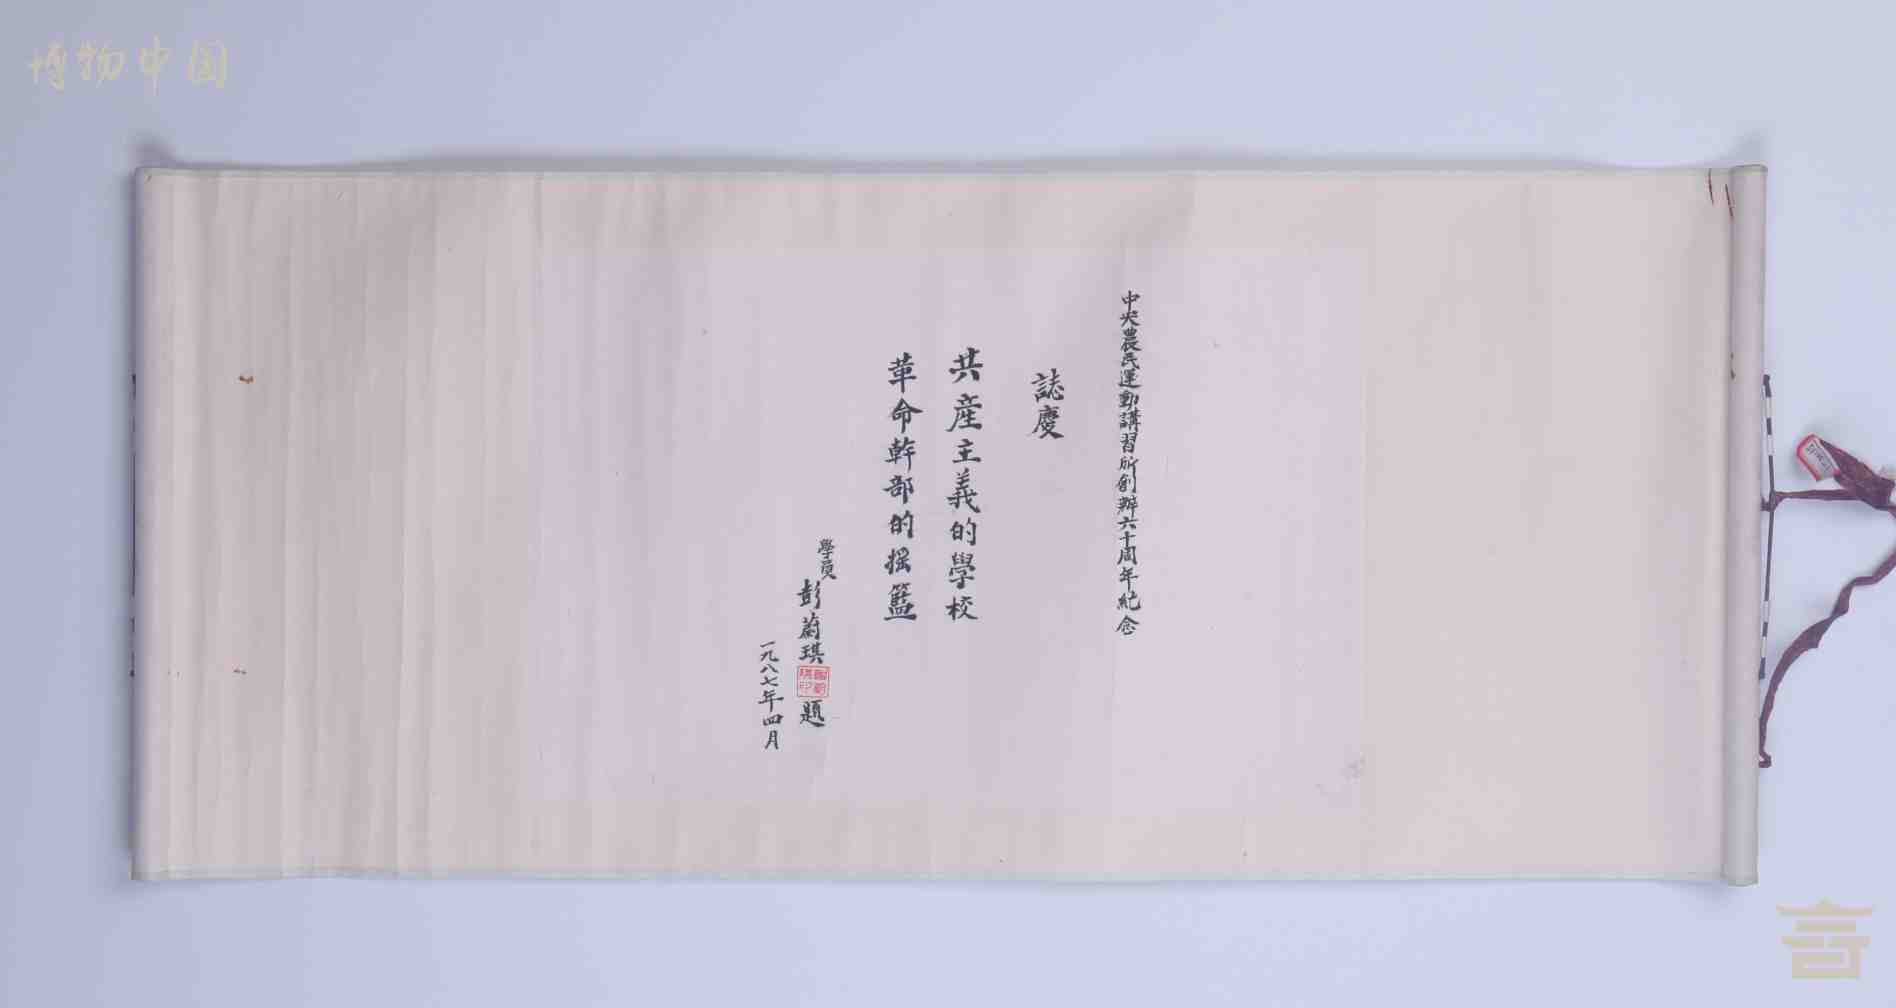 博物中国
中央農民運動講習所創辦六十周年紀念
誌慶
共産主義的學校
革命幹部的摇籃
學員
彭蔚琪
題
一九八七年四月